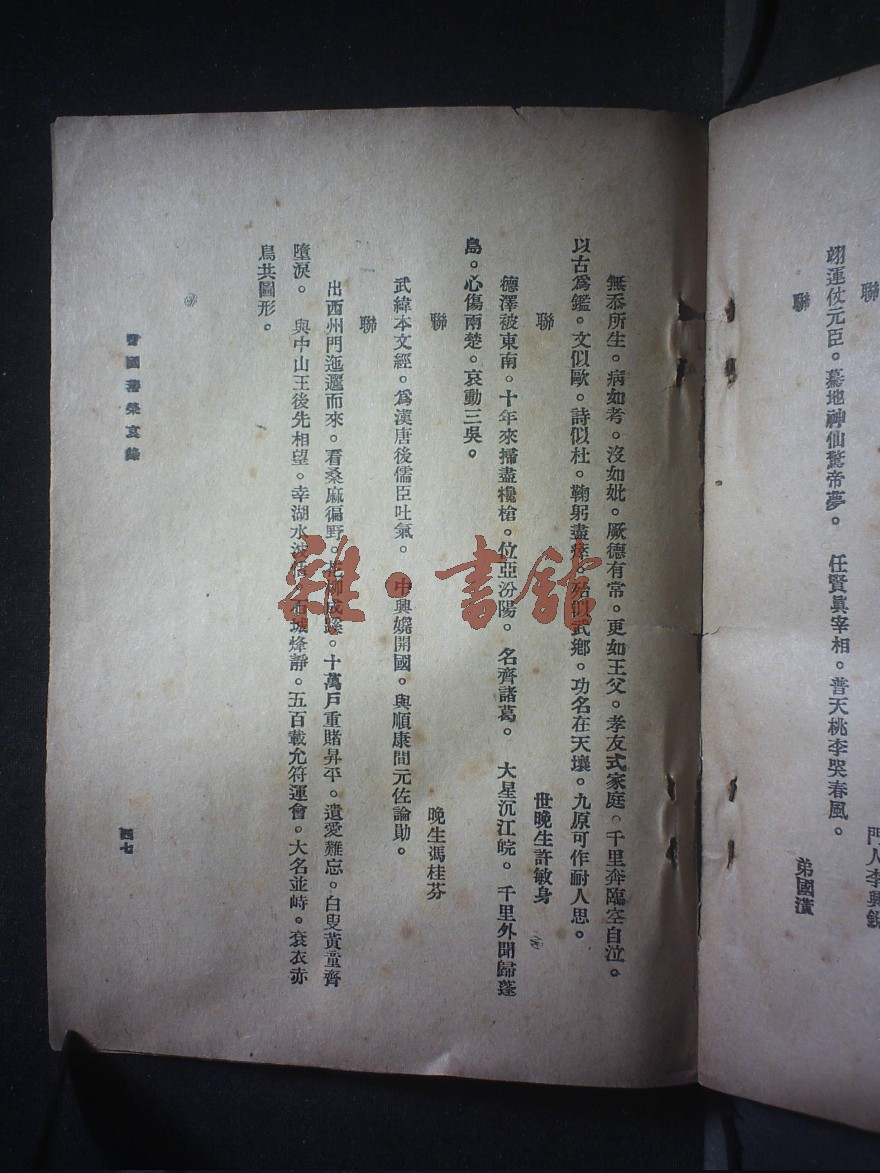 聯
門人李興銳
翊運仗元臣。墓地神仙驚帝夢。 任賢眞宰相。普天桃李哭春風。
聯
弟國潢
無忝所生。病如考。沒如妣。厥德有常。更如王父。孝友式家庭。千里奔臨空自泣。
以古爲鑑。文似歐。詩似杜。鞠躬盡瘁。殆似武鄉。功名在天壤。九原可作耐人思。
聯
世晚生許敏身
德澤被東南。十年來掃盡欃槍。位亞汾陽。名齊諸葛。 大星沉江皖。千里外聞歸蓬
島。心傷兩楚。哀動三吳。
聯
晚生馮桂芬
武緯本文經。爲漢唐後儒臣吐氣。 中興媲開國。與順康間元佐論勛。
聯
出西州門迤邐而來。看桑麻徧野。花柳成蹊。十萬戶重睹昇平。遺愛難忘。白叟黃童齊
墮淚。 與中山王後先相望。幸湖水波恬。石城烽靜。五百載允符運會。大名並峙。袞衣赤
鳥共圖形。
曾國藩榮哀錄
四七
雜·書館